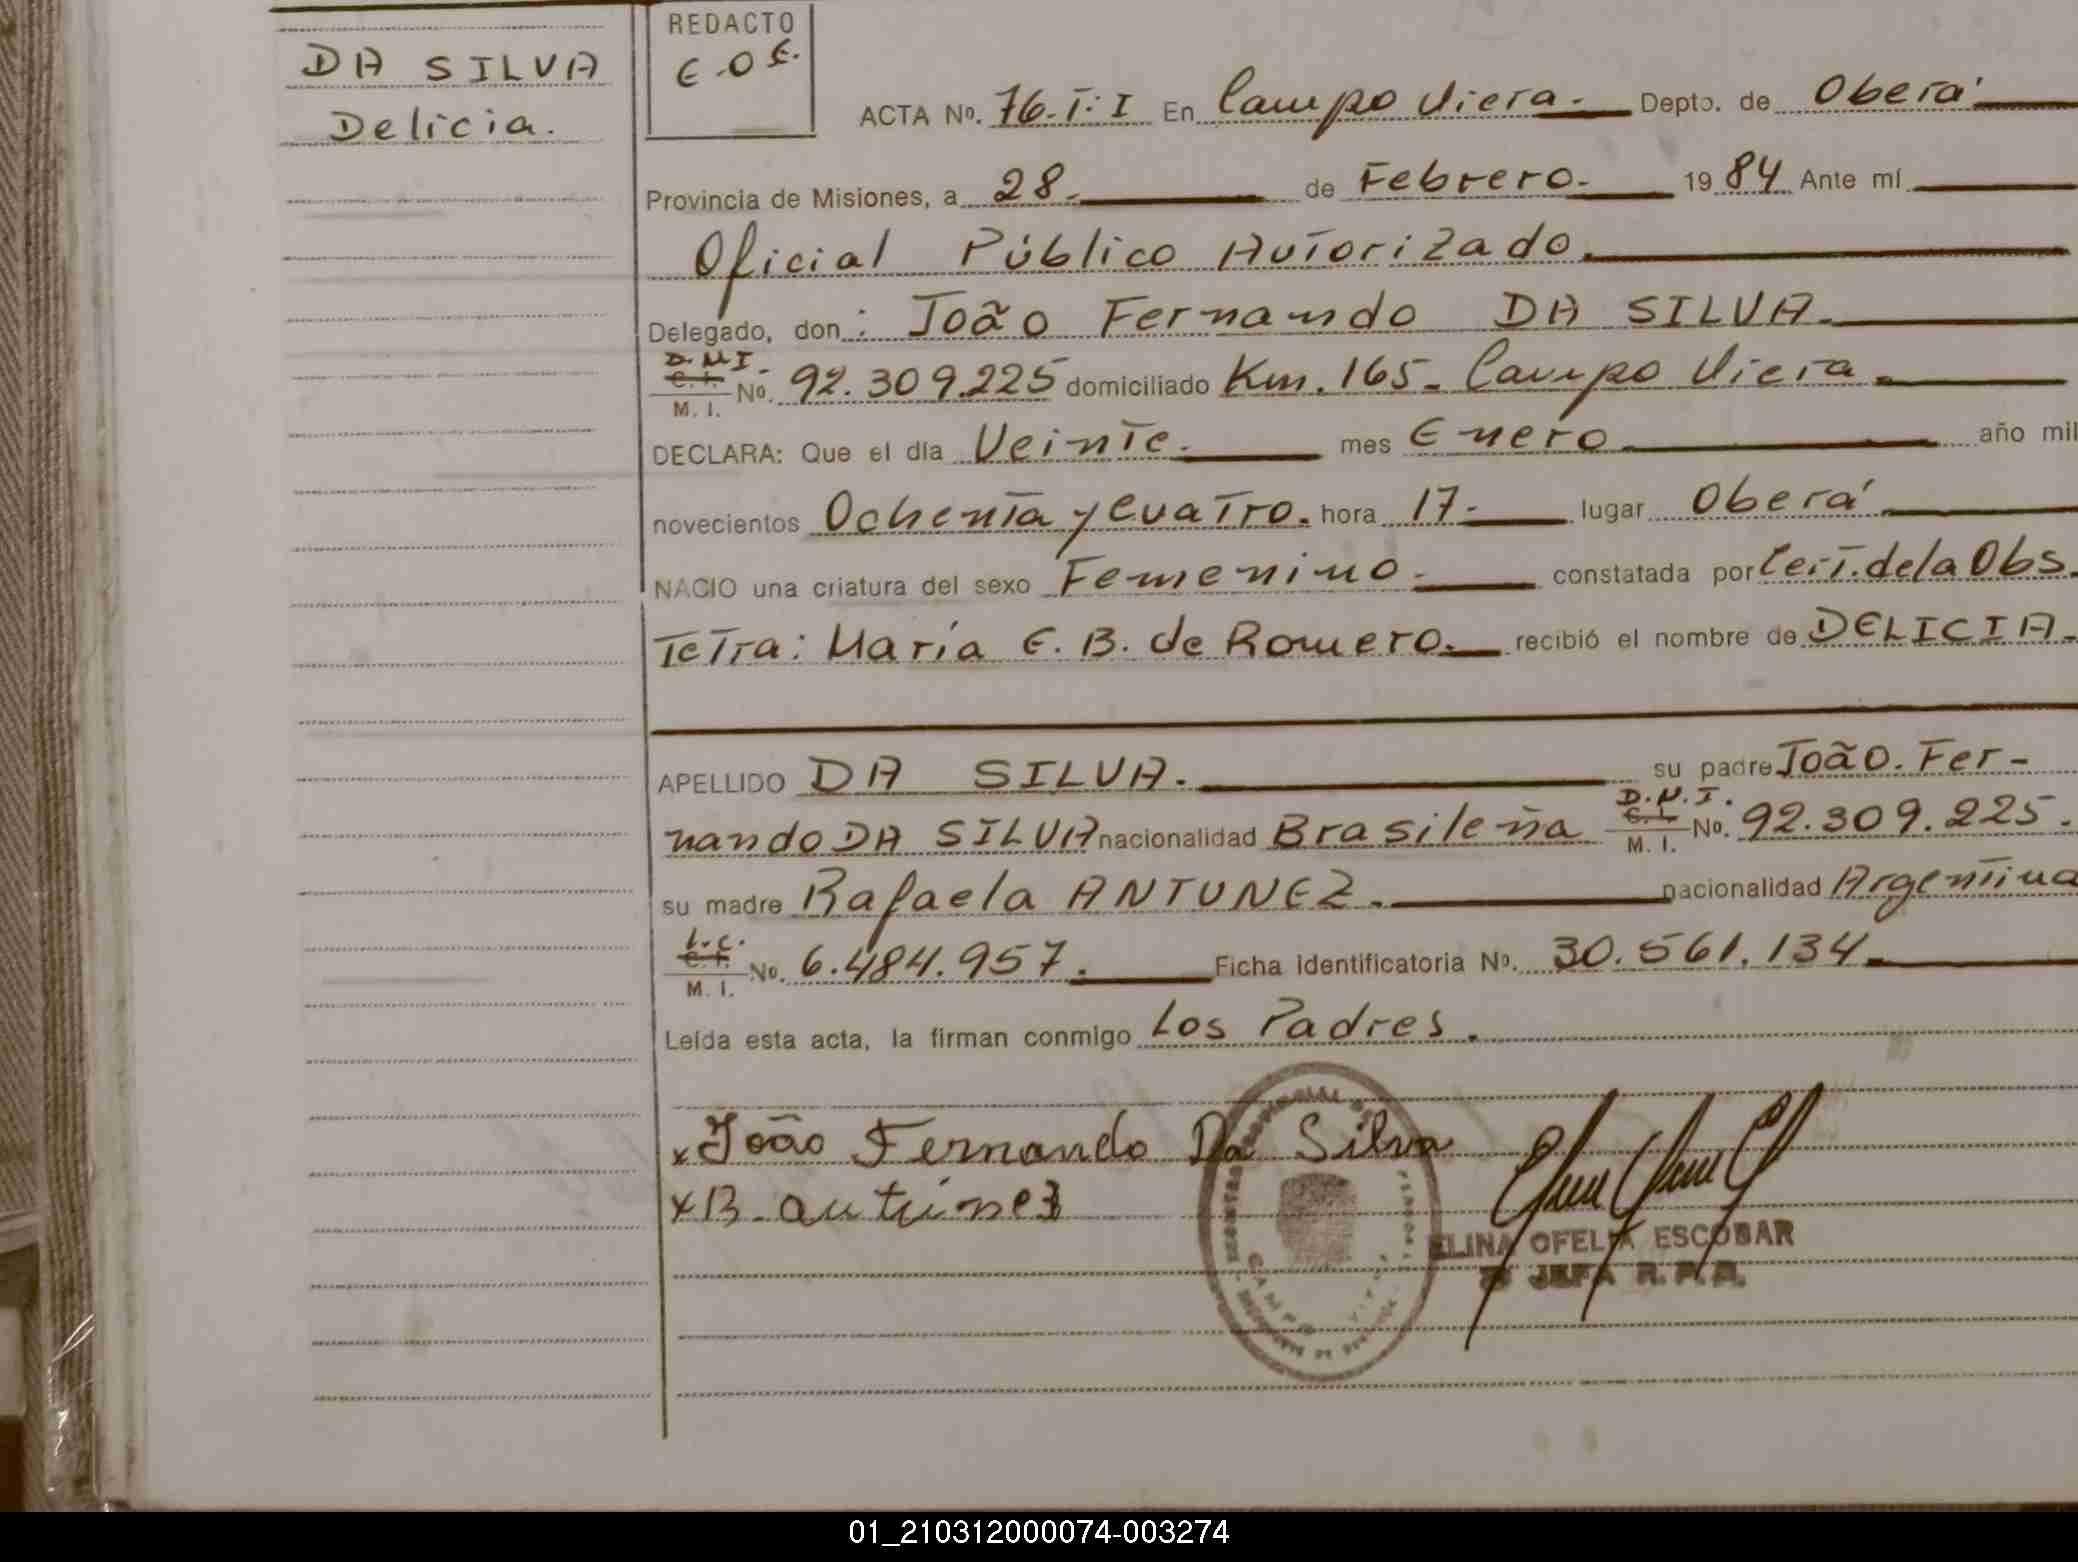 DA SILVA
Delicia.
REDACTO
E.O.E.
ACTA Nº. 76.T:I En Campo Viera. Depto. de Oberá
Provincia de Misiones, a 28. de Febrero. 1984 Ante mí
Oficial Público Autorizado.
Delegado, don : João Fernando DA SILVA.
D.N.I.
C.I. Nº. 92.309.225 domiciliado Km. 165. Campo Viera.
M. I.
DECLARA: Que el día Veinte. mes Enero año mil
novecientos Ochenta y Cuatro. hora 17. lugar Oberá
NACIO una criatura del sexo Femenino. constatada por Cert. de la Obs.
Tetra: María E. B. de Romero. recibió el nombre de DELICIA.
APELLIDO DA SILVA. su padre João. Fer-
nando DA SILVA nacionalidad Brasileña D.N.I. C.I. Nº. 92.309.225.
M. I.
su madre Rafaela ANTUNEZ. nacionalidad Argentina
L.C.
C.I. Nº. 6.484.957. Ficha identificatoria Nº. 30.561.134.
M. I.
Leída esta acta, la firman conmigo Los Padres.
x João Fernando Da Silva
x R. antunez
ELINA OFELIA ESCOBAR
JEFA R.P.P.
CAMPO
01_210312000074-003274